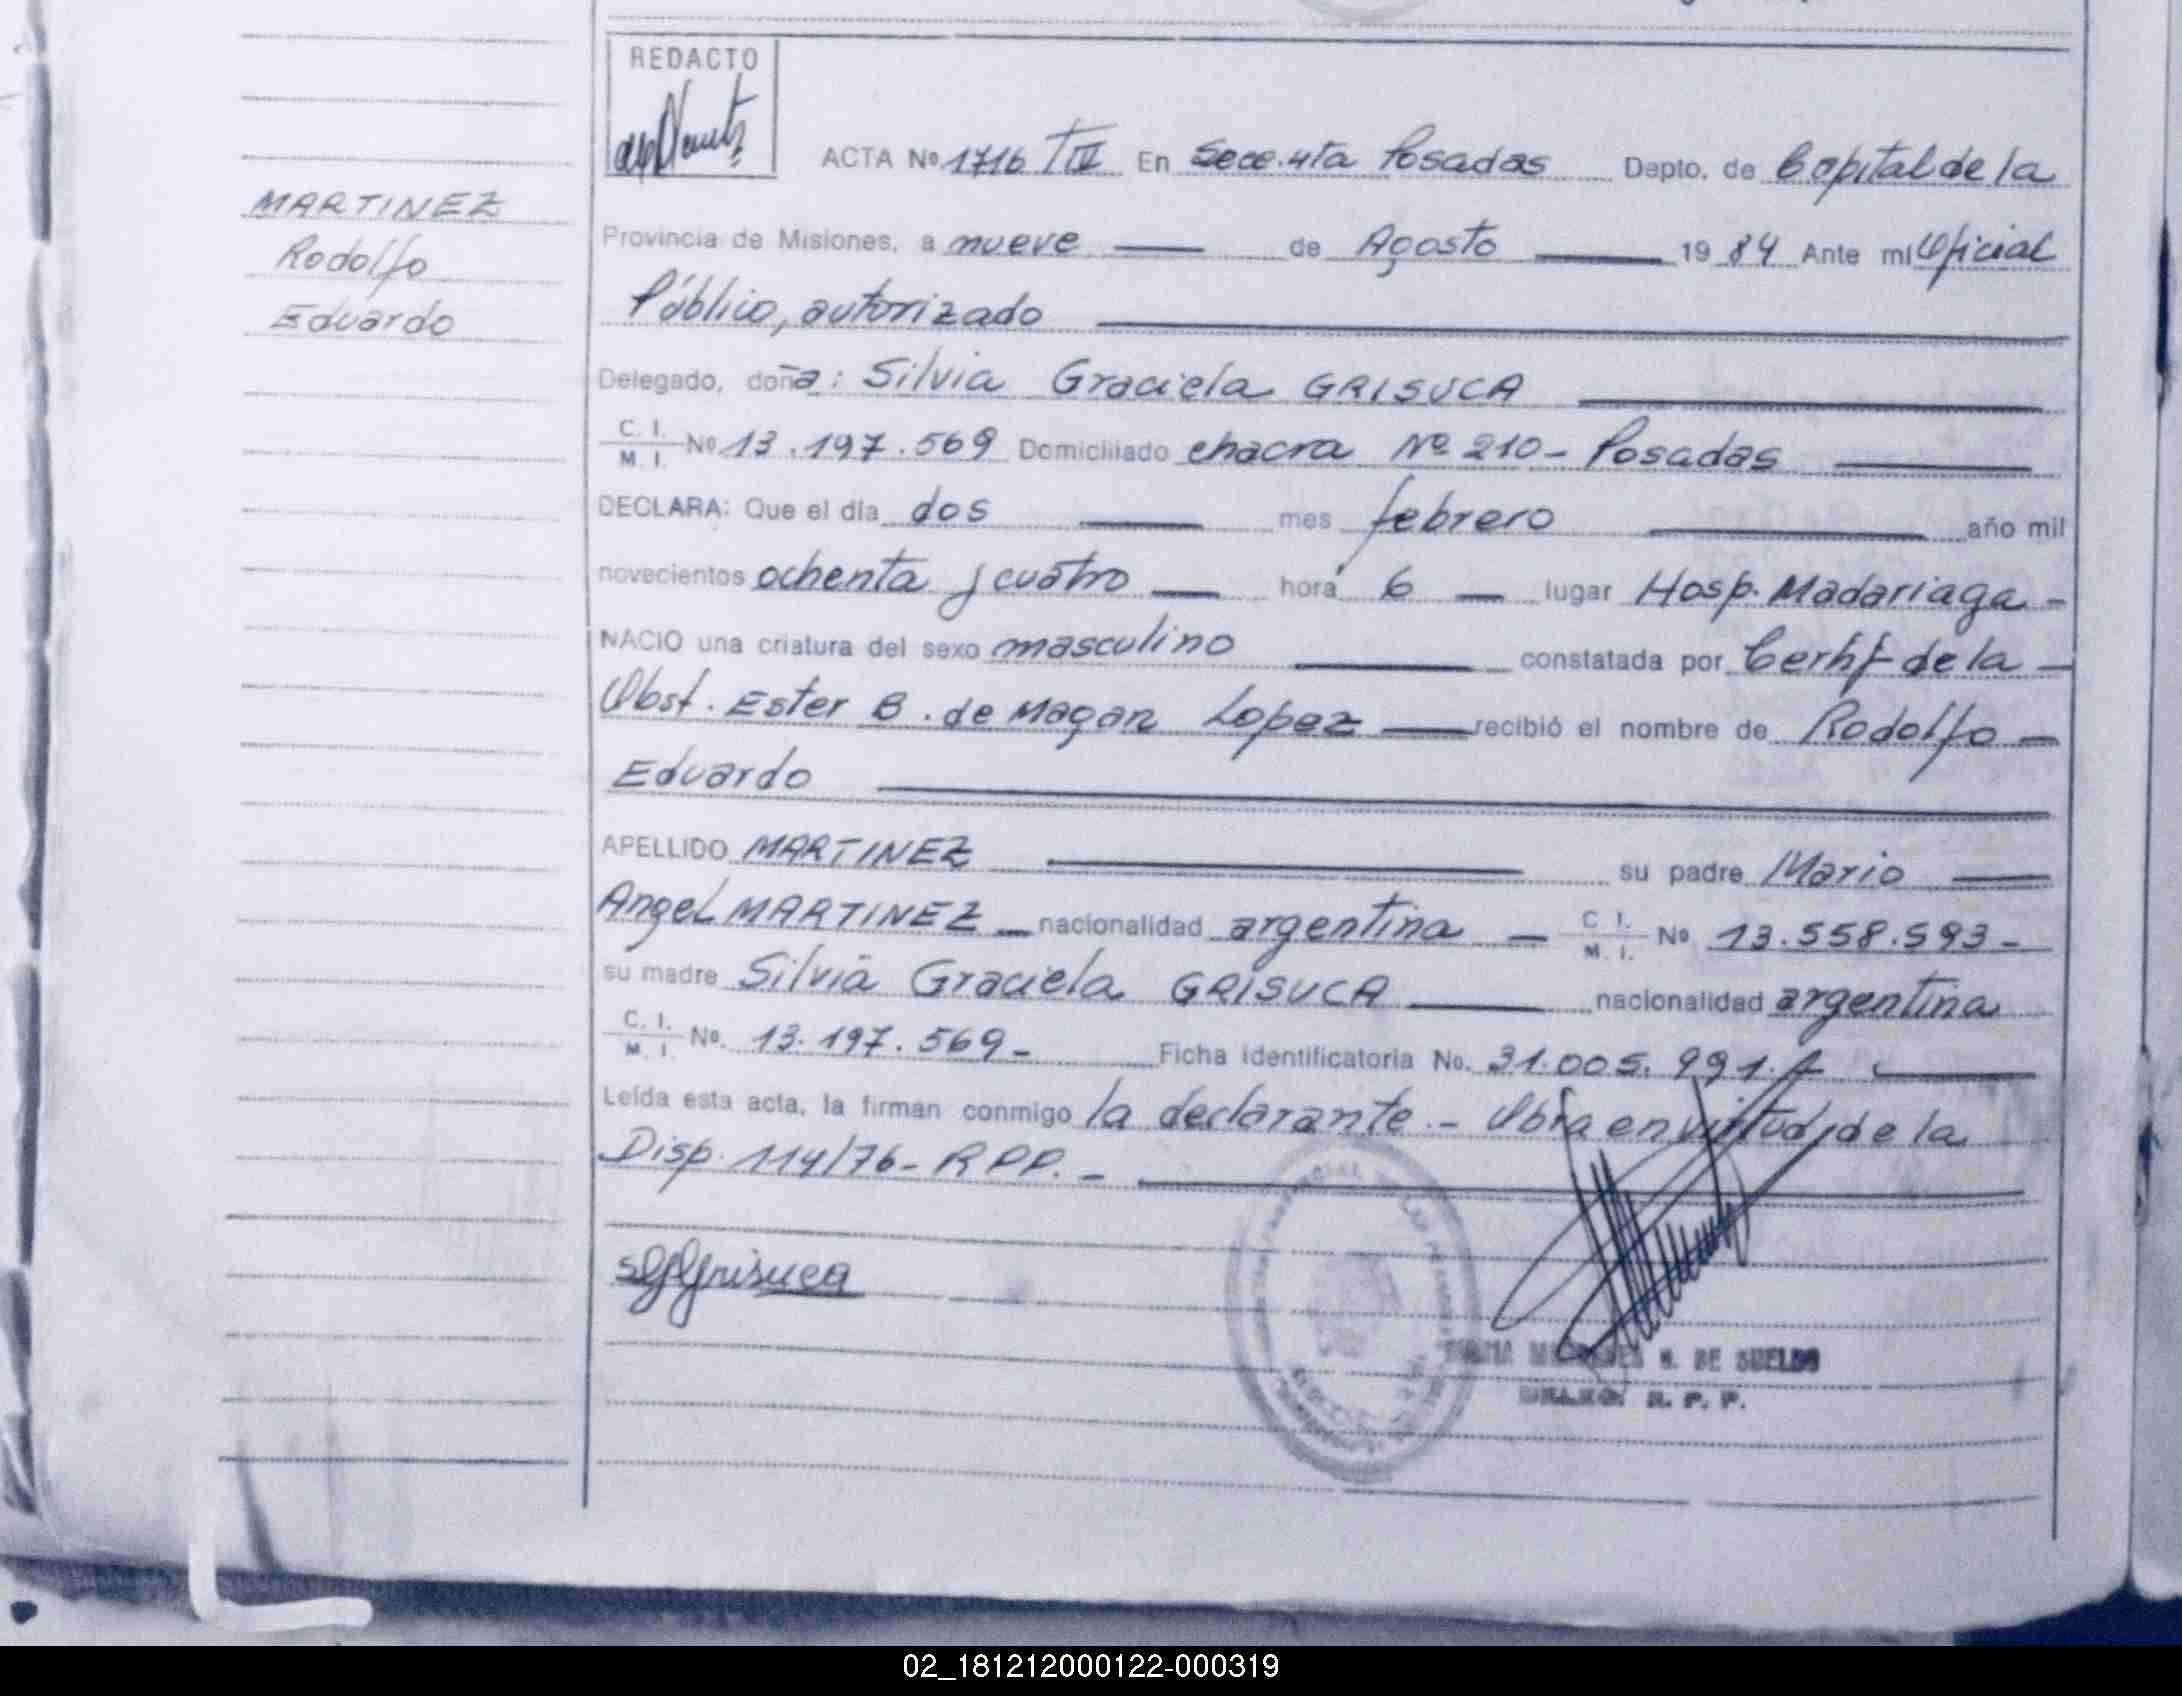 REDACTO
ACTA No 1716 TIV En Secc. 4ta Posadas Depto. de Capital de la
MARTINEZ
Rodolfo
Eduardo
Provincia de Misiones, a nueve — de Agosto — 19 84 Ante mi Oficial
Público, autorizado —
Delegado, doña: Silvia Graciela GRISUCA —
C. I. M. I. No 13.197.569 Domiciliado chacra No 210 - Posadas —
DECLARA: Que el dia dos — mes febrero — año mil
novecientos ochenta y cuatro — hora 6 — lugar Hosp. Madariaga -
NACIO una criatura del sexo masculino — constatada por Certif de la —
Obst. Ester B. de Magan Lopez — recibió el nombre de Rodolfo —
Eduardo —
APELLIDO MARTINEZ — su padre Mario —
Angel MARTINEZ — nacionalidad argentina — C I. M. I. No 13.558.593 -
su madre Silvia Graciela GRISUCA — nacionalidad argentina
C. I. M. I. No. 13.197.569 - Ficha identificatoria No. 31.005.991.-
Leída esta acta, la firman conmigo la declarante.- Obra en virtud de la
Disp. 114/76 - RPP. - —
SGGrisuca
DE SUELDO
R. P. P.
02_181212000122-000319